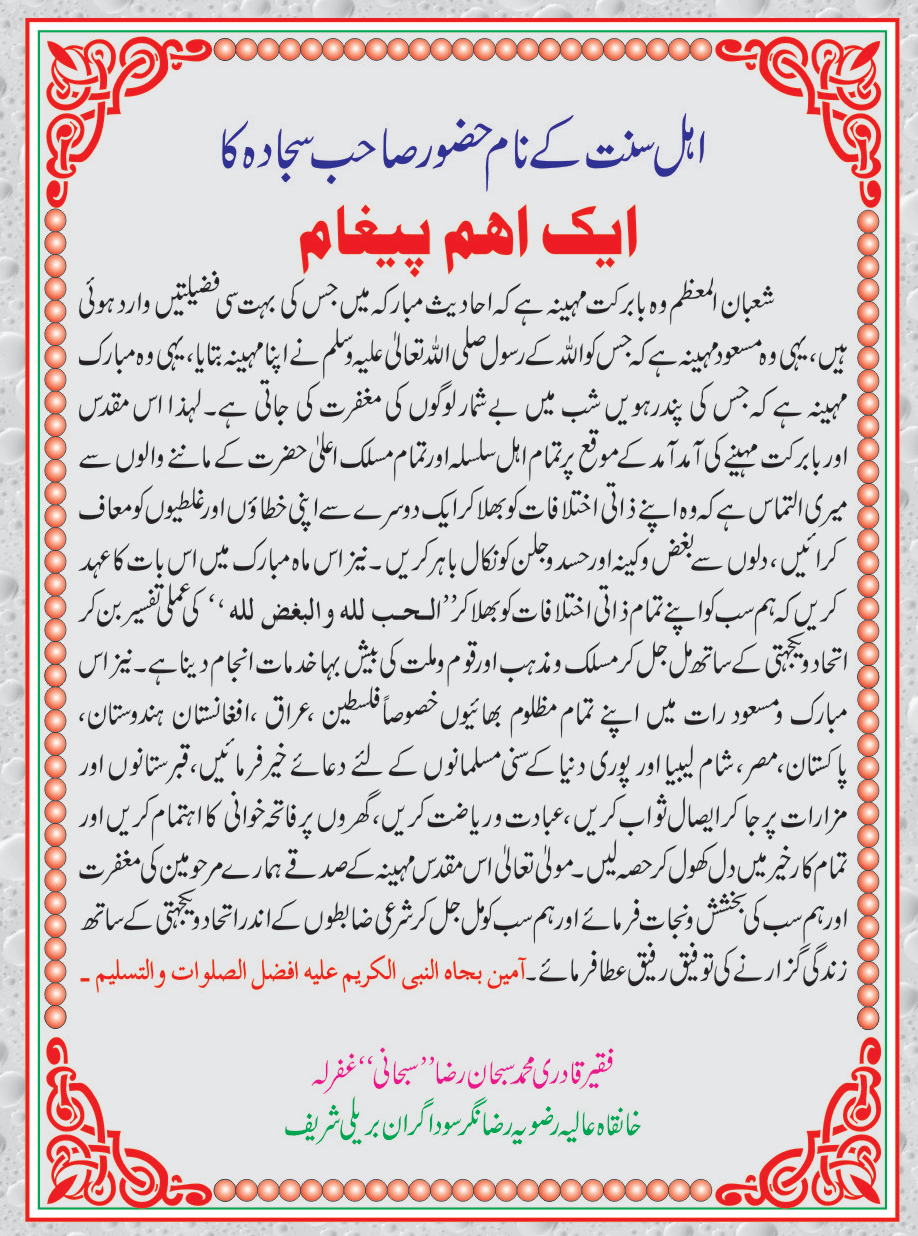 اہل سنت کے نام حضور صاحب سجادہ کا
ایک اهم پیغام
شعبان المعظم وہ بابرکت مہینہ ہے کہ احادیث مبارکہ میں جس کی بہت سی فضیلتیں وارد ہوئی
ہیں، یہی وہ مسعود مہینہ ہے کہ جس کو اللہ کے رسول صلی اللہ تعالیٰ علیہ وسلم نے اپنا مہینہ بتایا، یہی وہ مبارک
مہینہ ہے کہ جس کی پندرہویں شب میں بے شمار لوگوں کی مغفرت کی جاتی ہے۔ لہذا اس مقدس
اور بابرکت مہینے کی آمد آمد کے موقع پر تمام اہل سلسلہ اور تمام مسلک اعلیٰ حضرت کے ماننے والوں سے
میری التماس ہے کہ وہ اپنے ذاتی اختلافات کو بھلا کر ایک دوسرے سے اپنی خطاؤں اور غلطیوں کو معاف
کرائیں، دلوں سے بغض وکینہ اور حسد وجلن کو نکال باہر کریں۔ نیز اس ماہ مبارک میں اس بات کا عہد
کریں کہ ہم سب کو اپنے تمام ذاتی اختلافات کو بھلا کر ’’الحب لله و البغض لله‘‘ کی عملی تفسیر بن کر
اتحاد ویکجہتی کے ساتھ مل جل کر مسلک ومذہب اور قوم وملت کی بیش بہا خدمات انجام دینا ہے۔ نیز اس
مبارک ومسعود رات میں اپنے تمام مظلوم بھائیوں خصوصاً فلسطین ،عراق ،افغانستان ہندوستان،
پاکستان،مصر، شام لیبیا اور پوری دنیا کے سنی مسلمانوں کے لئے دعائے خیر فرمائیں،قبرستانوں اور
مزارات پر جا کر ایصال ثواب کریں ،عبادت وریاضت کریں، گھروں پر فاتحہ خوانی کا اہتمام کریں اور
تمام کار خیر میں دل کھول کر حصہ لیں۔ مولیٰ تعالیٰ اس مقدس مہینہ کے صدقے ہمارے مرحومین کی مغفرت
اور ہم سب کی بخشش ونجات فرمائے اور ہم سب کو مل جل کر شرعی ضابطوں کے اندر اتحاد ویکجہتی کے ساتھ
زندگی گزارنے کی توفیق رفیق عطا فرمائے۔ آمین بجاه النبی الکریم علیه افضل الصلوات والتسلیم ۔
فقیر قادری محمد سبحان رضا ’’سبحانی‘‘ غفرلہ
خانقاہ عالیہ رضویہ رضا نگر سوداگران بریلی شریف